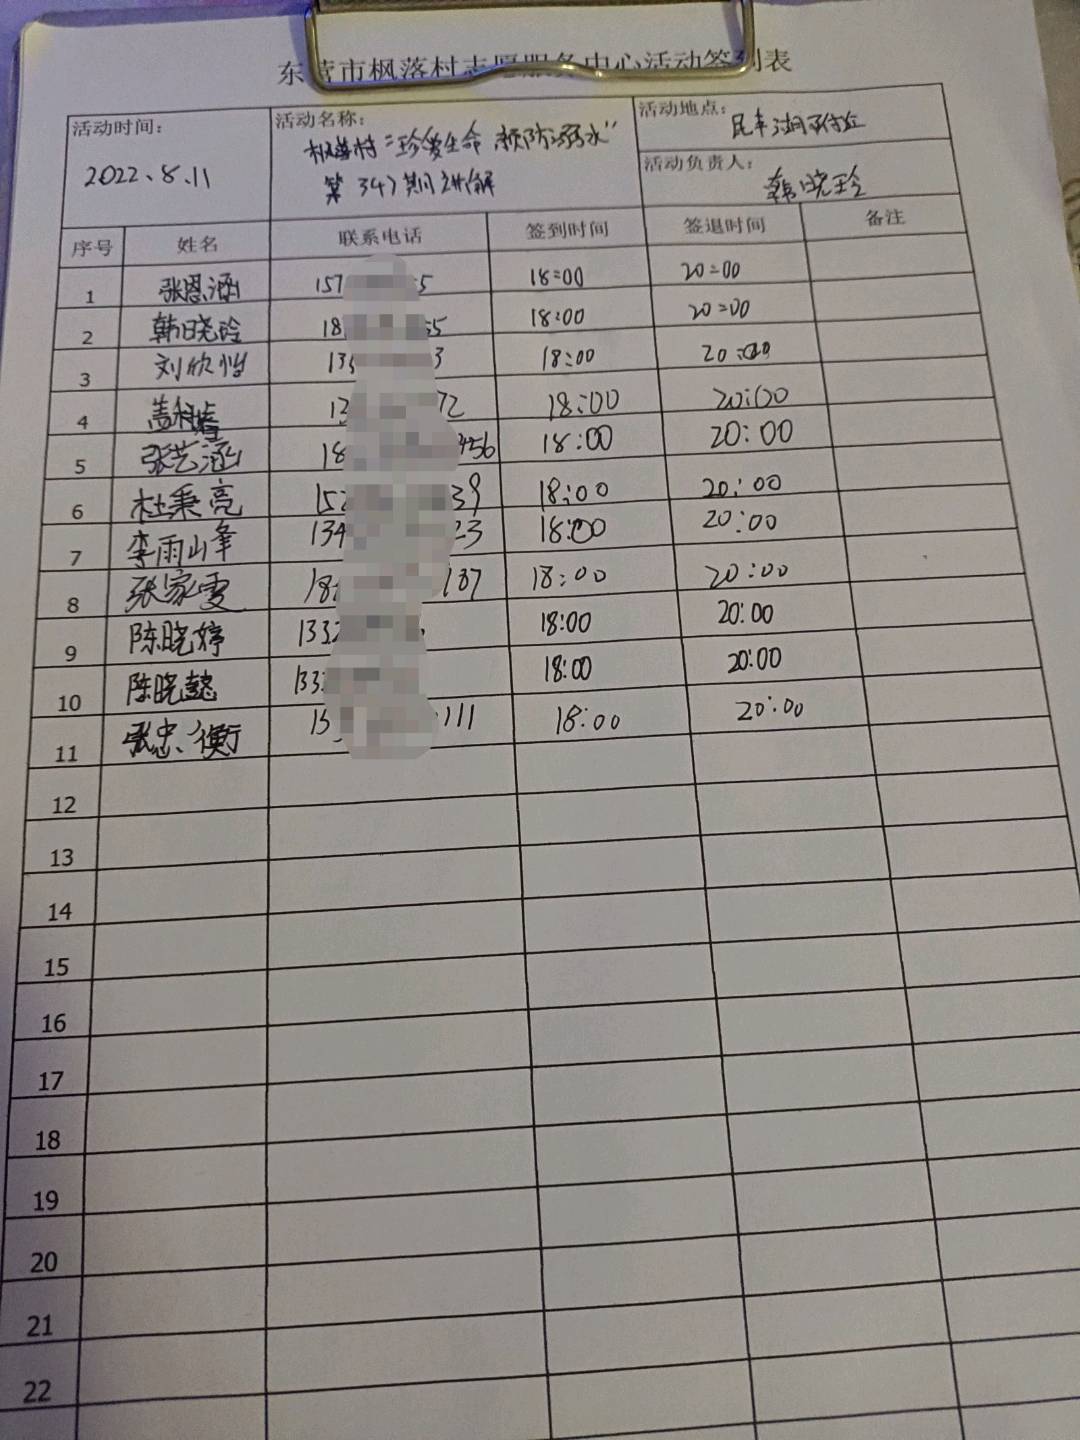 东营市枫落村志愿服务中心活动签到表
活动时间:
2022、8.11
活动名称:
枫落村“珍爱生命,预防溺水”
第347期讲解
活动地点: 民丰湖附近
活动负责人:
韩晓玲
序号 姓名 联系电话 签到时间 签退时间 备注
1 张恩涵 157 5 18:00 20:00
2 韩晓玲 18 5 18:00 20:00
3 刘欣怡 13 3 18:00 20:00
4 13 72 18:00 20:00
5 张艺涵 18 456 18:00 20:00
6 杜秉亮 152 39 18:00 20:00
7 李雨峰 134 23 18:00 20:00
8 张家雯 18 137 18:00 20:00
9 陈晓婷 1332 18:00 20:00
10 陈晓懿 133 18:00 20:00
11 张忠衡 15 111 18:00 20:00
12
13
14
15
16
17
18
19
20
21
22